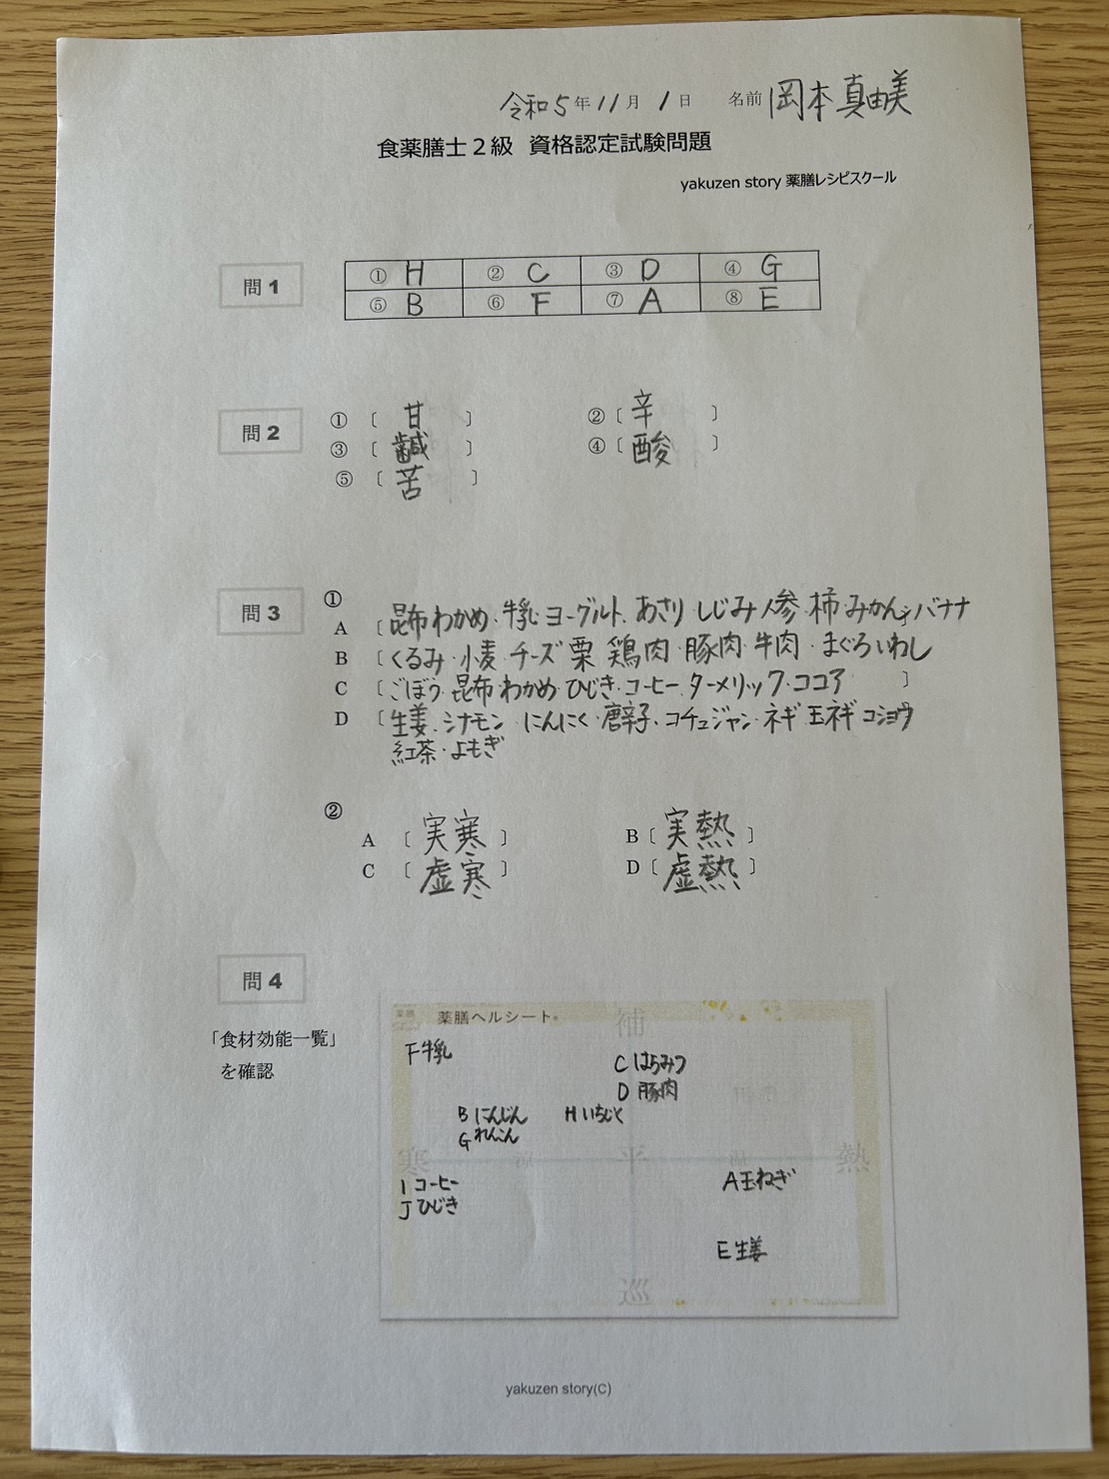 令和5年11月1日 名前 岡本真由美
食薬膳士2級 資格認定試験問題
yakuzen story 薬膳レシピスクール
問1
① H ② C ③ D ④ G
⑤ B ⑥ F ⑦ A ⑧ E
問2
① 〔 甘 〕 ② 〔 辛 〕
③ 〔 鹹 〕 ④ 〔 酸 〕
⑤ 〔 苦 〕
問3
①
A 〔 昆布 わかめ・牛乳・ヨーグルト・あさり しじみ 人参・柿・みかん バナナ
B 〔 くるみ・小麦・チーズ 栗 鶏肉・豚肉・牛肉・まぐろ いわし
C 〔 ごぼう・昆布 わかめ・ひじき・コーヒー・ターメリック・ココア 〕
D 〔 生姜・シナモン・にんにく・唐辛子・コチュジャン・ネギ 玉ネギ コショウ
紅茶・よもぎ
②
A 〔 実寒 〕 B 〔 実熱 〕
C 〔 虚寒 〕 D 〔 虚熱 〕
問4
「食材効能一覧」
を確認
薬膳ヘルシート®
補
F 牛乳
C はちみつ
D 豚肉
B にんじん H いちじく
G れんこん
寒 平 熱
I コーヒー
J ひじき
A 玉ねぎ
E 生姜
巡
yakuzen story(C)